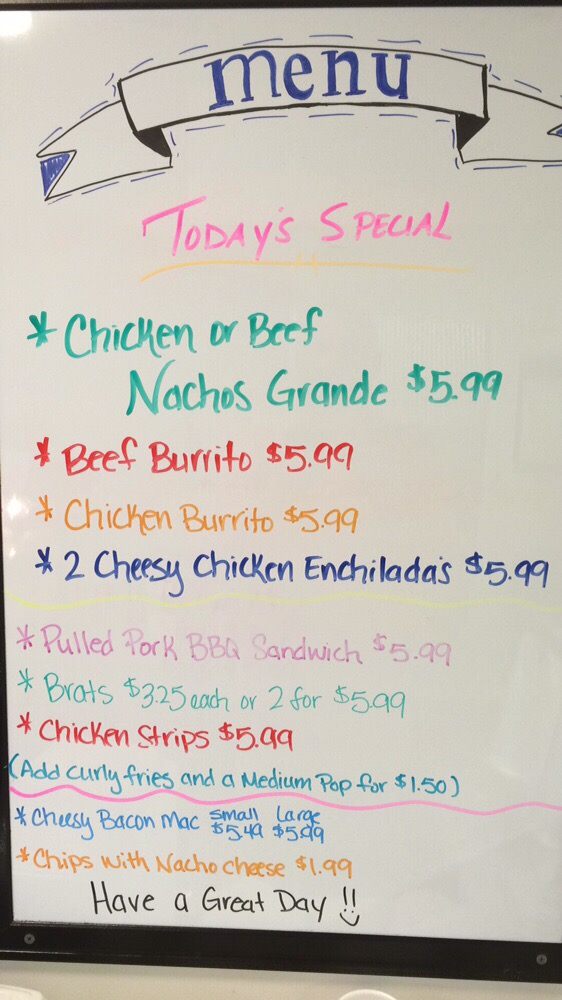 menu
TODAY'S SPECIAL
* Chicken or Beef
Nachos Grande $5.99
* Beef Burrito $5.99
* Chicken Burrito $5.99
* 2 Cheesy Chicken Enchilada's $5.99
* Pulled Pork BBQ Sandwich $5.99
* Brats $3.25 each or 2 for $5.99
* Chicken Strips $5.99
(Add curly fries and a Medium Pop for $1.50)
* Cheesy Bacon Mac small $5.49 Large $5.99
* Chips with Nacho Cheese $1.99
Have a Great Day !!